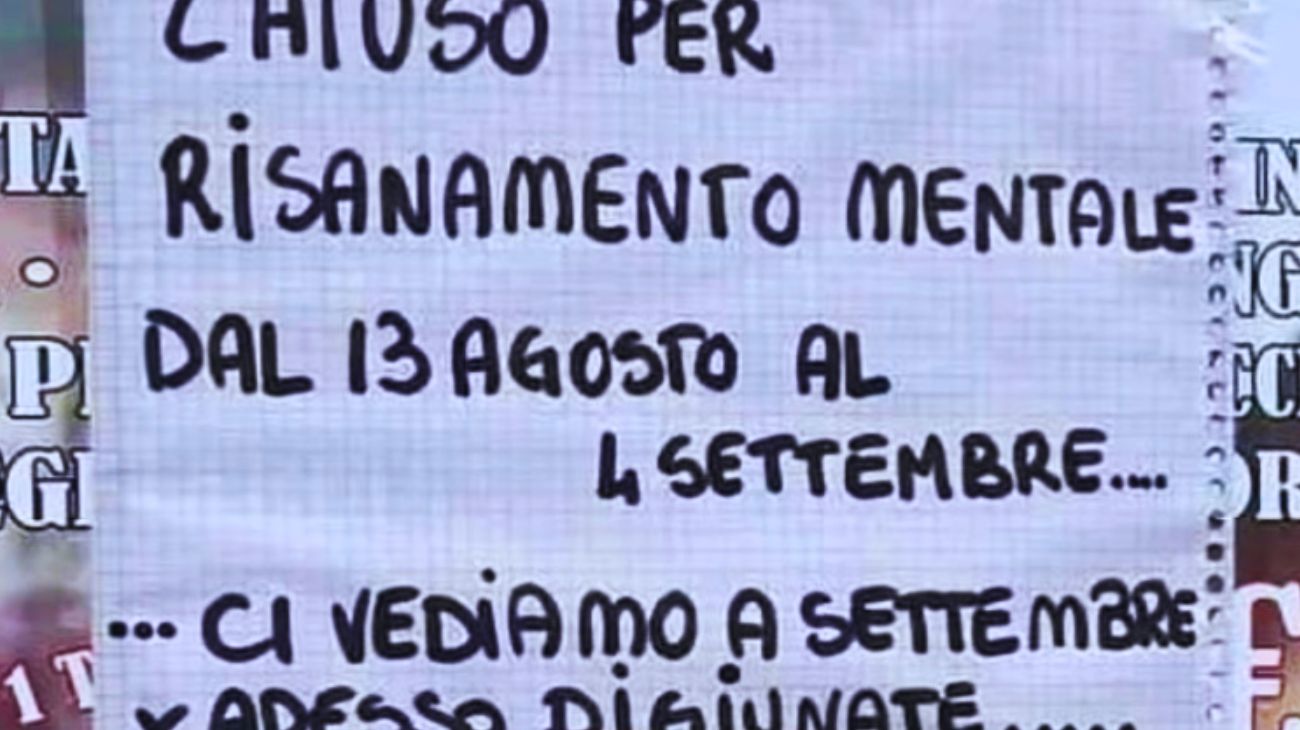 CHIUSO PER
RiSANAMENTO MENTALE
DAL 13 AGOSTO AL
4 SETTEMBRE....
... CI VEDiAMO A SETTEMBRE
x ADESSO DiGiUNATE......